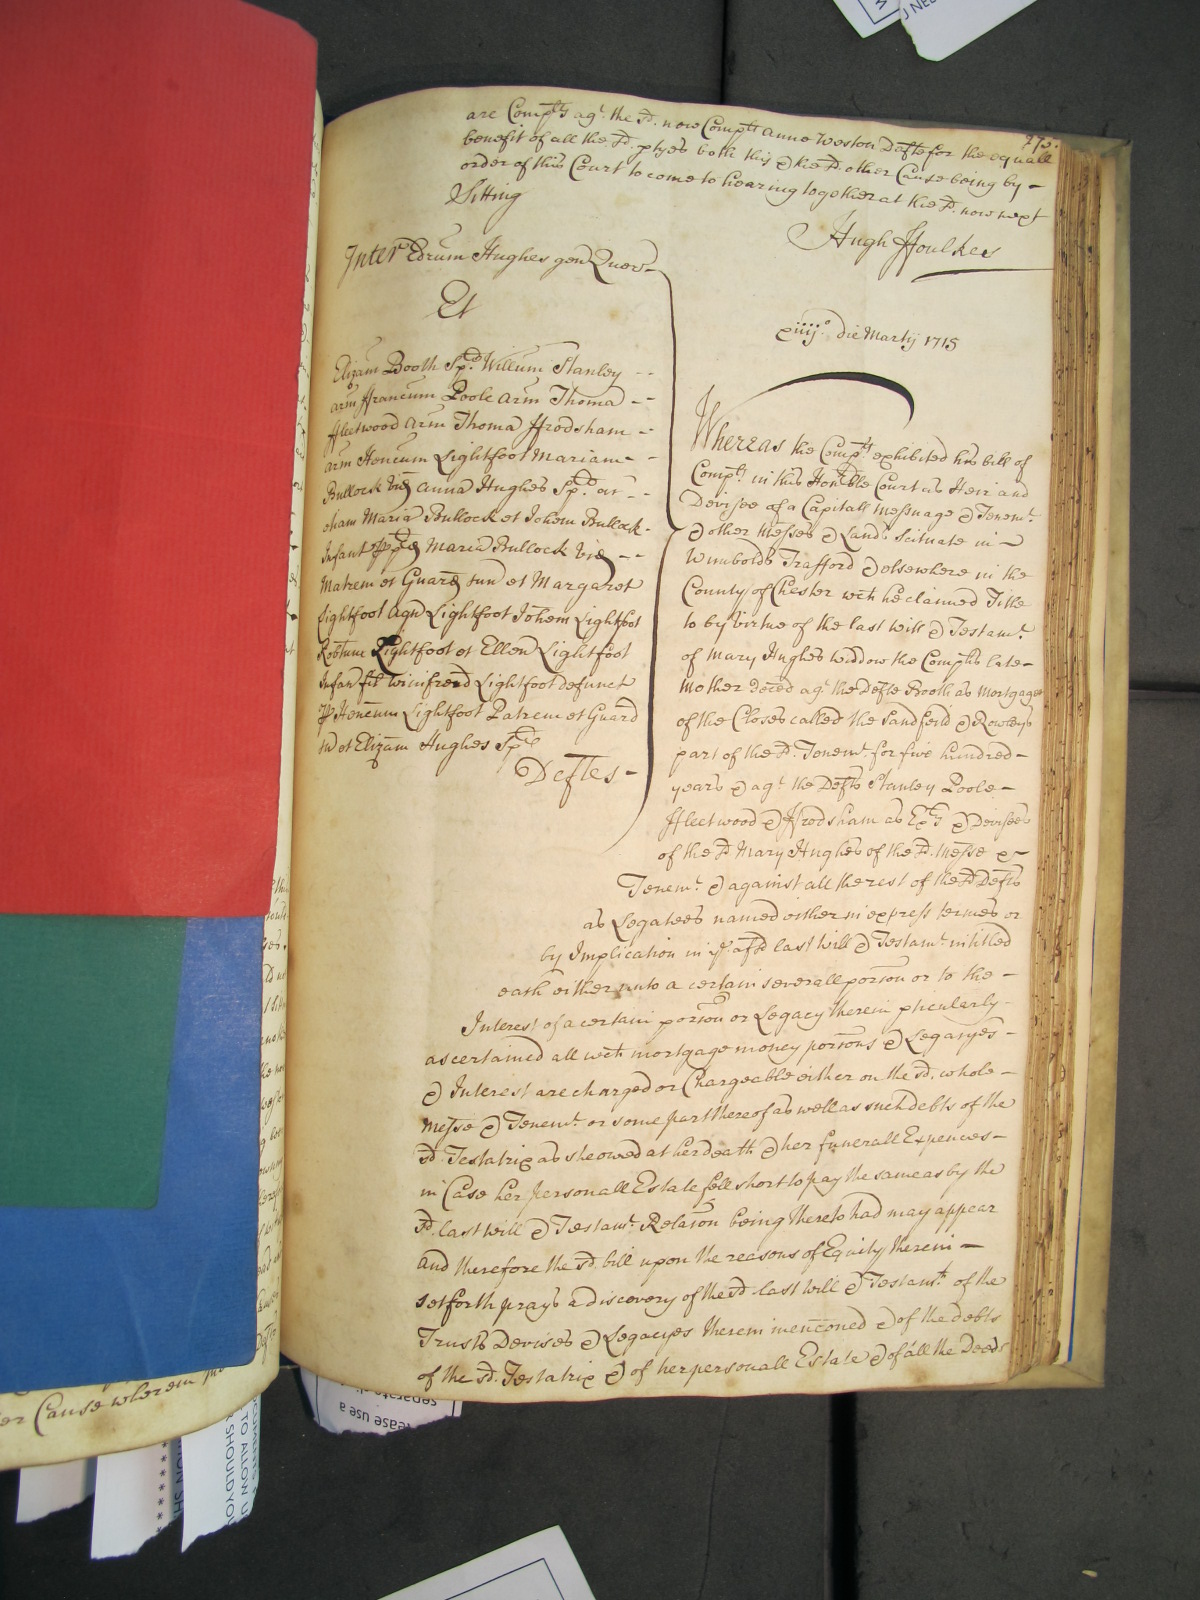 975.
are Compᵗˢ agᵗ. the sᵈ. now Compᵗˢ Anne Weston Defte for the equall
benefit of all the sᵈ. ptyes both this & the sᵈ. other Cause being by -
order of this Court to come to hearing together at the sᵈ. now next
Sitting
Hugh Ffoulkes
Inter Edrum Hughes gen Quer-
Et
xiiijᵒ. die Martij 1715
Elizam Booth Spᵈ Willum Stanley - -
arm Ffrancum Poole arm Thoma - -
Ffleetwood arm Thoma Ffrodsham -
arm Hencum Lightfoot Mariam - -
Bullock vid Anna Hughes Spᵈ ar - -
eham Maria Bullock et Johem Bullock -
Infant Maria Bullock vid - -
Matrem et Guard suu et Margaret
Lightfoot Agn Lightfoot Johem Lightfoot
Robtum Lightfoot et Ellen Lightfoot
Infan fil winifred Lightfoot defunct
P Hencum Lightfoot Patrem et Guard
su et Elizam Hughes Spᵈ
Deftes -
Whereas the Compᵗ exhibited his bill of
Compᵗ. in this Honᵇle Court as Heir and
Devisee of a Capitall messuage & Tenemᵗ.
& other Messes & Lands scituate in -
Wimbolds Trafford & elsewhere in the
County of Chester wch he claimed Title
to by virtue of the last will & Testamᵗ.
of Mary Hughes widdow the Compᵗˢ late -
mother deced agᵗ the Defte Booth as Mortgagee
of the Closes called the Sandfeild & Rowleys
part of the sᵈ. Tenemᵗ. for five hundred -
years & agᵗ the Defts Stanley Poole -
Ffleetwood & Ffrodsham as Exᵗˢ & Devisees
of the sᵈ Mary Hughes of the sᵈ. Messe & -
Tenemᵗ. & against all the rest of the sᵈ Defts
as Legatees named either in express termes or
by Implication in yᵉ afsᵈ last will & Testamᵗ intitled
each either unto a certain severall porson or to the -
Interest of a certain porson or Legacy therein pticularly -
ascertained all wch mortgage money porsons & Legacyes -
& Interest are charged or Chargeable either on the sᵈ. whole -
Messe & Tenemᵗ. or some part thereof as well as such debts of the
sᵈ. Testatrix as she owed at her death & her funerall Expences -
in Case her personall Estate fell short to pay the same as by the
sᵈ. last will & Testamᵗ. Relason being thereto had may appear
and therefore the sᵈ. bill upon the reasons of Equity therein -
setforth prays a discovery of the sᵈ last will & Testamᵗ. of the
Trusts Devises & Legacyes therein menconed & of the debts
of the sᵈ. Testatrix & of her personall Estate & of all the Deeds
er Cause wherein